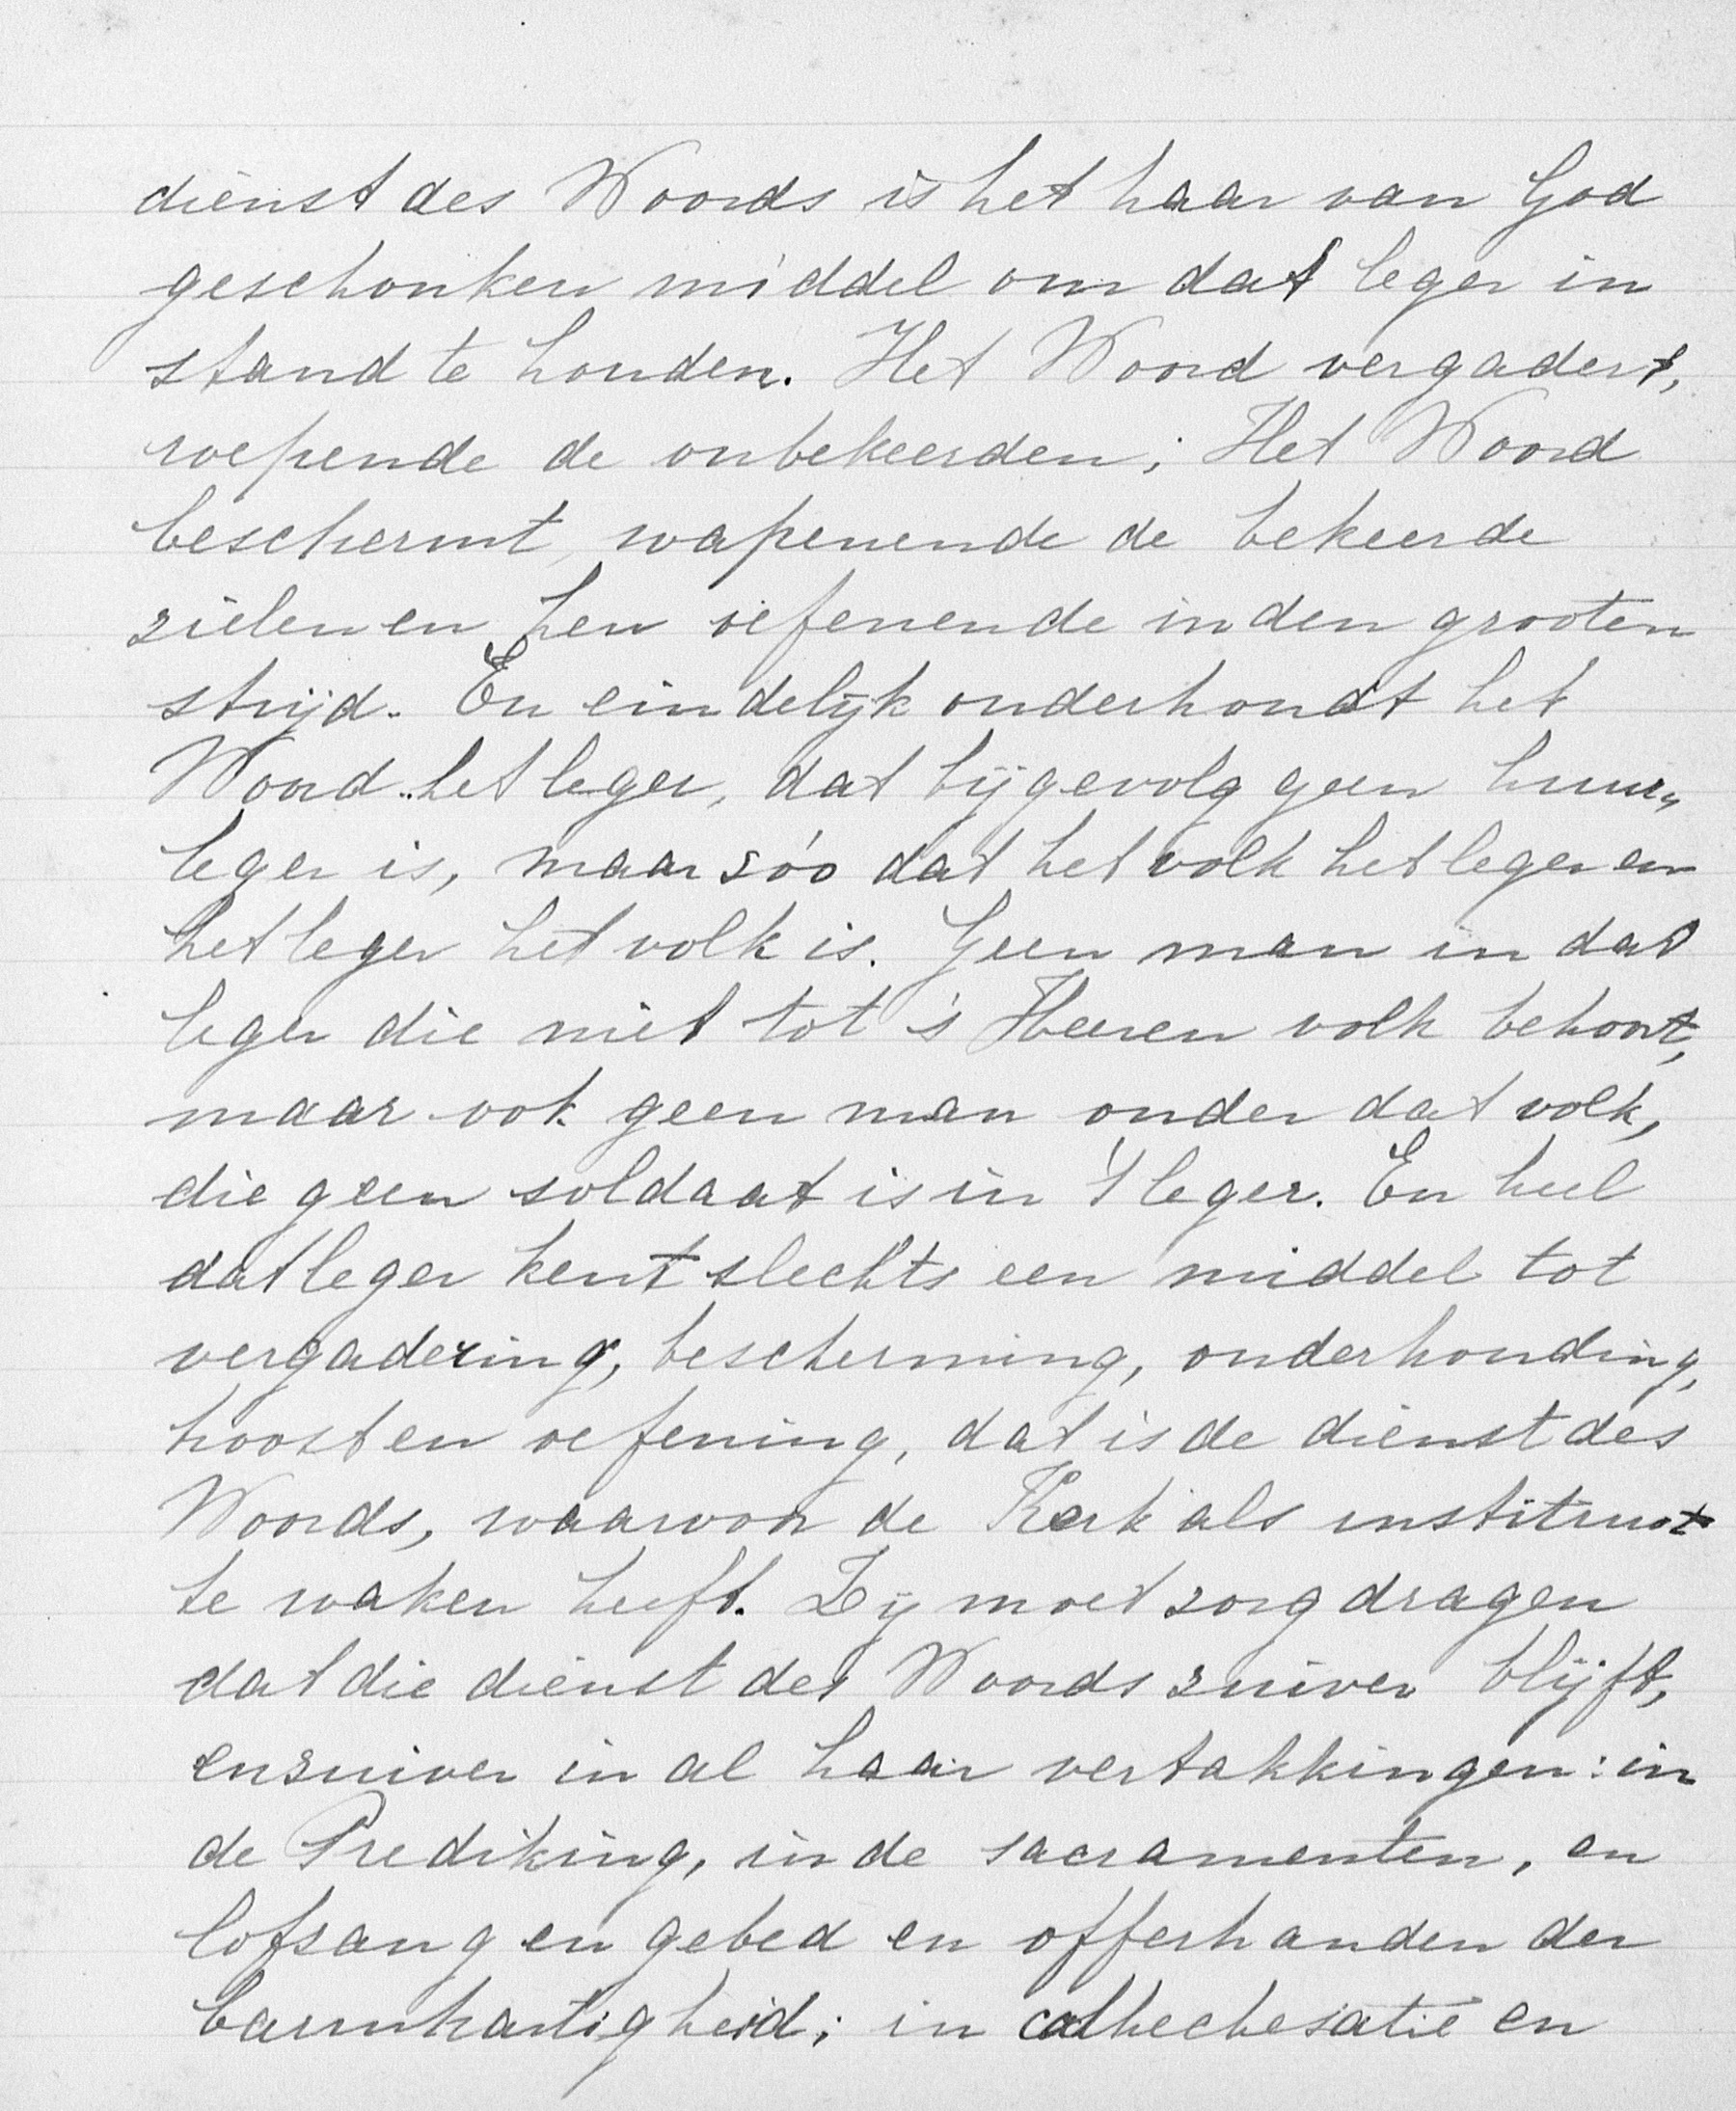 dienst des Woords is het haar van God
geschonken middel om dat leger in
stand te houden. Het Woord vergadert,
roepende de onbekeerden; Het Woord
beschermt, wapenende de bekeerde
zielen en hen oefenende in den grooten
strijd. En eindelijk onderhoudt het
Woord het leger, dat bijgevolg geen huur„
leger is, maar zóo dat het volk het leger en
het leger het volk is. Geen man in dat
leger die niet tot 's Heeren volk behoort,
maar ook geen man onder dat volk,
die geen soldaat is in 't leger. En heel
dat leger kent slechts een middel tot
vergadering, bescherming, onderhouding,
troost en oefening, dat is de dienst des
Woords, waarvoor de Kerk als instituut
te waken heeft. Zij moet zorg dragen
dat die dienst des Woords zuiver blijft,
en zuiver in al haar vertakkingen: in
de Prediking, in de sacramenten, en
lofzang en gebed en offerhanden der
barmhartigheid; in cathechesatie en